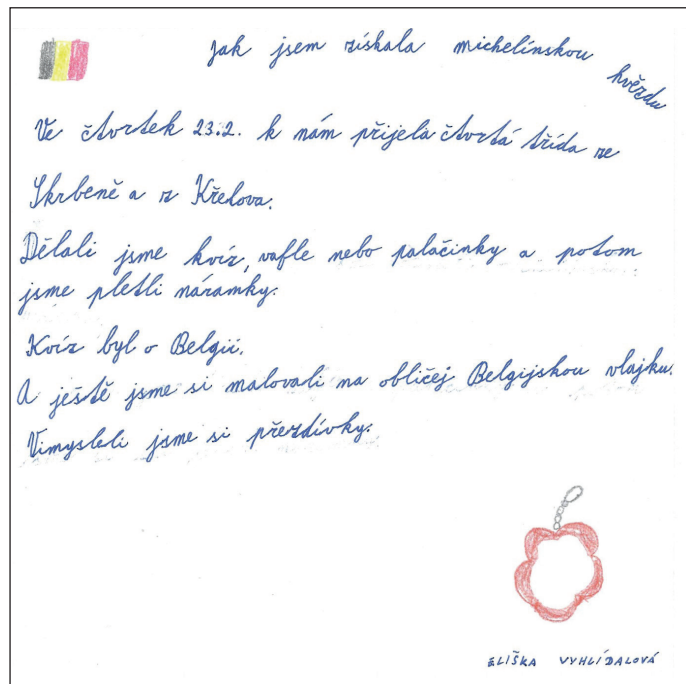 Jak jsem získala michelinskou hvězdu
Ve čtvrtek 23.2. k nám přijela čtvrtá třída ze
Skrbeně a z Křelova.
Dělali jsme kvíz, vafle nebo palačinky a potom
jsme pletli náramky.
Kvíz byl o Belgii.
A ještě jsme si malovali na obličej Belgijskou vlajku.
Vimysleli jsme si přezdívky.
ELIŠKA VYHLÍDALOVÁ